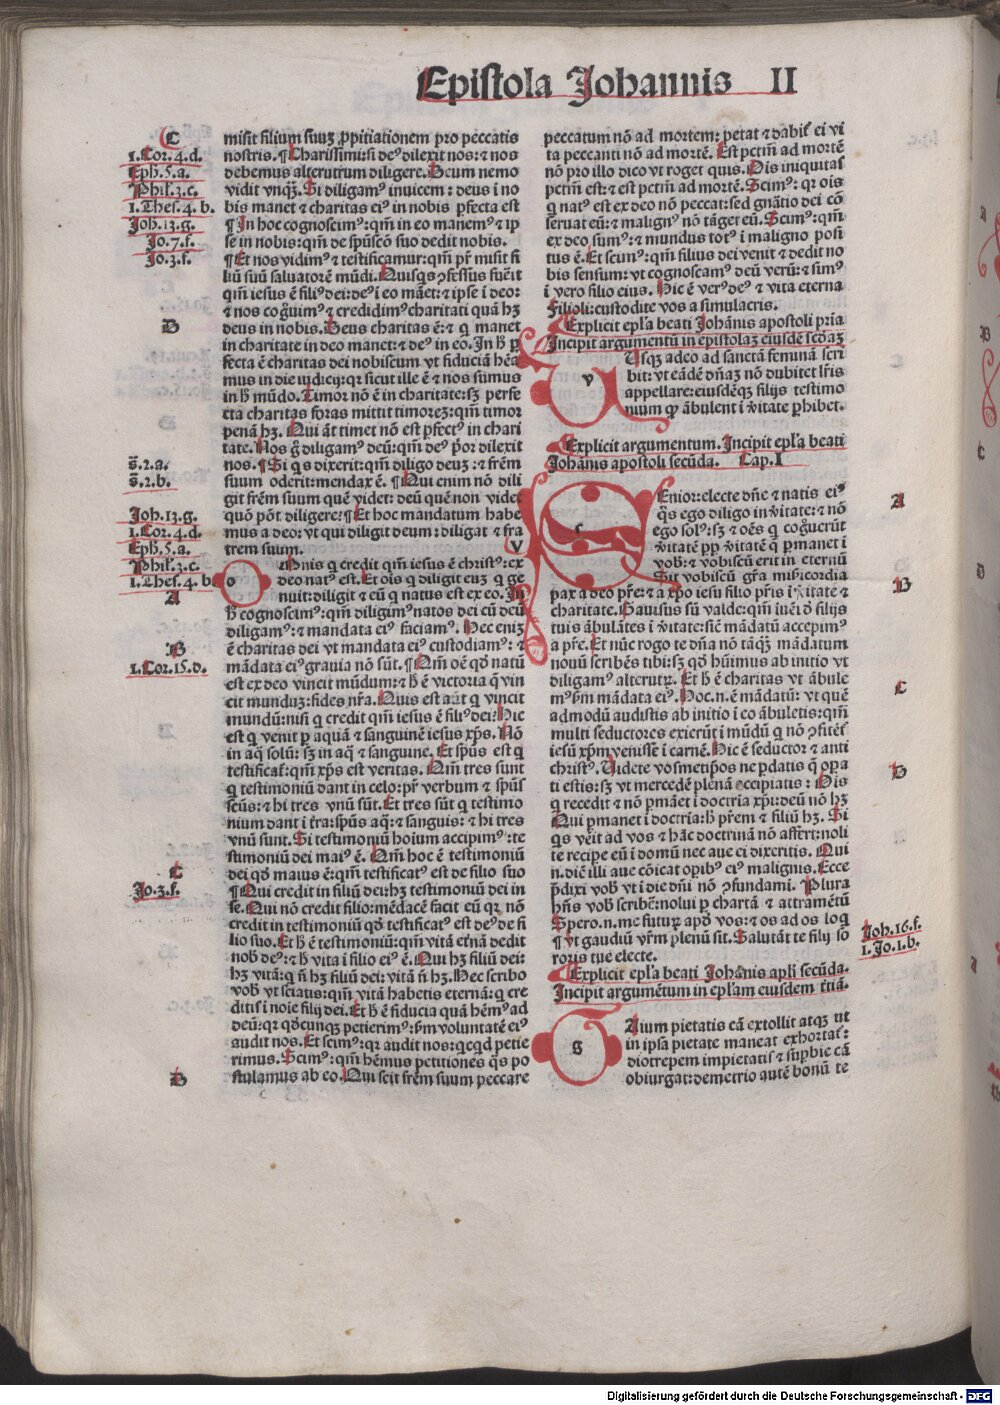 Epistola Johannis II
C
1.Cor.4.d.
Eph.5.a.
Phil.3.c.
1.Thes.4.b.
Joh.13.g.
Jo.7.f.
Jo.3.f.
D
s̄.2.a.
s̄.2.b.
Joh.13.g.
1.Cor.4.d.
Eph.5.a.
Phil.3.c.
1.Thes.4.b
A
B
1.Cor.15.d.
C
Jo.3.f.
D
misit filium suuꝫ ꝓpitiationem pro peccatis
nostris. ¶Charissimi:si deꝰ dilexit nos:⁊ nos
debemus alterutrum diligere. Deum nemo
vidit vnqꝫ. Si diligamꝰ inuicem: deus ī no
bis manet ⁊ charitas eiꝰ in nobis ꝑfecta est
¶In hoc cognoscimꝰ:qm̄ in eo manemꝰ ⁊ ip
se in nobis:qm̄ de spūscō suo dedit nobis.
¶Et nos vidimꝰ ⁊ testificamur:qm̄ pr̄ misit fi
liū suū saluatorē mūdi. Quisqs ꝯfessus fuēit
qm̄ iesus ē filiꝰ dei:deꝰ ī eo māet:⁊ ipse ī deo:
⁊ nos cogͦuimꝰ ⁊ credidimꝰ charitati quā hꝫ
deus in nobis. Deus charitas ē:⁊ q manet
in charitate in deo manet:⁊ deꝰ in eo. In h̄ ꝑ
fecta ē charitas dei nobiscum vt fiduciā hēa
mus in die iudicij:qꝛ sicut ille ē ⁊ nos sumus
in h̄ mūdo. Timor nō ē in charitate:sꝫ perfe
cta charitas foras mittit timoreꝫ:qm̄ timor
penā hꝫ. Qui āt timet nō est ꝑfectꝰ in chari
tate. Nos g̊ diligamꝰ deū:qm̄ deꝰ p̄or dilexit
nos. ¶Si qs dixerit:qm̄ diligo deuꝫ:⁊ frēm
suum oderit:mendax ē. ¶Qui enim nō dili
git frēm suum quē videt:deū quē non videt
quō pōt diligere? ¶Et hoc mandatum habe
mus a deo:vt qui diligit deum:diligat ⁊ fra
trem suum. V
o
mnis q credit qm̄ iesus ē christꝰ:ex
deo natꝰ est. Et oīs q diligit euꝫ q ge
nuit:diligit ⁊ eū q natus est ex eo. In
h̄ cognoscimꝰ:qm̄ diligimꝰ natos dei cū deū
diligamꝰ:⁊ mandata eiꝰ faciamꝰ. Hec enīꝫ
ē charitas dei vt mandata eiꝰ custodiamꝰ:⁊
mādata eiꝰ grauia nō sūt. ¶Qm̄ oē qd̄ natū
est ex deo vincit mūdum:⁊ h̄ ē victoria q̄ vin
cit munduꝫ:fides nr̄a. Quis est aūt q vincit
mundū:nisi q credit qm̄ iesus ē filiꝰ dei: Hic
est q venit ꝑ aquā ⁊ sanguinē iesus xp̄s. Nō
in aq̄ solū: sꝫ in aq̄ ⁊ sanguine. Et spūs est q
testificat̄:qm̄ xp̄s est veritas. Qm̄ tres sunt
q testimoniū dant in celo:pr̄ verbum ⁊ spūs
scūs:⁊ hi tres vnū sūt. Et tres sūt q testimo
nium dant ī t̄ra:spūs aq̄:⁊ sanguis:⁊ hi tres
vnū sunt. Si testimoniū hoīum accipimꝰ:te
stimoniū dei maiꝰ ē. Qm̄ hoc ē testimoniū
dei qd̄ maius ē:qm̄ testificatꝰ est de filio suo
¶Qui credit in filiū dei:hꝫ testimoniū dei in
se. Qui nō credit filio:mēdacē facit eū qꝛ nō
credit in testimoniū qd̄ testificatꝰ est deꝰ de fi
lio suo. Et h̄ ē testimoniū:qm̄ vitā et̄nā dedit
nob̄ deꝰ:⁊ h̄ vita ī filio eiꝰ ē. Qui hꝫ filiū dei:
hꝫ vitā:q n̄ hꝫ filiū dei:vitā n̄ hꝫ. Hec scribo
vob̄ vt sciatis:qm̄ vitā habetis eternā:q cre
ditis ī noīe filij dei. Et h̄ ē fiducia quā hēmꝰ ad
deū:qꝛ qd̄cunqꝫ petierimꝰ:ẜm voluntatē eiꝰ
audit nos. Et scimꝰ:qꝛ audit nos:qcqd petie
rimus. Scimꝰ:qm̄ hēmus petitiones q̄s po
stulamus ab eo. Qui scit frēm suum peccare
peccatum nō ad mortem: petat ⁊ dabit̄ ei vi
ta peccanti nō ad mortē. Est pctm̄ ad mortē
nō pro illo dico vt roget quis. Oīs iniquitas
pctm̄ est:⁊ est pctm̄ ad mortē. Scimꝰ: qꝛ oīs
q natꝰ est ex deo nō peccat:sed gn̄atio dei cō
seruat eū:⁊ malignꝰ nō tāget eū. Scimꝰ:qm̄
ex deo sumꝰ:⁊ mundus totꝰ ī maligno posi
tus ē. Et scimꝰ:qm̄ filius dei venit ⁊ dedit no
bis sensum:vt cognoscamꝰ deū verū:⁊ simꝰ
ī vero filio eius. Hic ē verꝰ deꝰ ⁊ vita eterna
Filioli:custodite vos a simulacris.
Explicit epl̄a beati Johānis apostoli pria
Incipit argumentū in epistolaꝫ eiusdē scd̄aꝫ
v
Usqꝫ adeo ad sanctā feminā scri
bit:vt eādē dn̄aꝫ nō dubitet lr̄is
appellare:eiusdēqꝫ filijs testimo
nium qꝛ ābulent ī v̄itate ꝑhibet.
Explicit argumentum. Incipit epl̄a beati
Johānis apostoli secūda. Cap.I
s
Enior:electe dn̄e ⁊ natis eiꝰ
q̄s ego diligo in v̄itate:⁊ nō
ego solꝰ:sꝫ ⁊ oēs q cogͦuerūt
v̄itatē ꝓp̄ v̄itatē q ꝑmanet ī
vob̄:⁊ vobiscū erit in eternū
Sit vobiscū gr̄a mīẜicordia
pax a deo pr̄e:⁊ a xp̄o iesu filio pr̄is ī v̄itate ⁊
charitate. Gauisus sū valde:qm̄ īuēi d̄ filijs
tuis ābulātes ī v̄itate:sic̄ mādatū accepimꝰ
a pr̄e. Et nūc rogo te dn̄a nō tāqꝫ mādatum
nouū scribēs tibi:sꝫ qd̄ hūimus ab initio vt
diligamꝰ alterutꝝ. Et h̄ ē charitas vt ābule
mꝰ ẜm mādata eiꝰ. Hoc.n.ē mādatū: vt quē
admodū audistis ab initio ī eo ābuletis:qm̄
multi seductores exierūt ī mūdū q nō ꝯfitēt̄
iesū xp̄m venisse ī carnē. Hic ē seductor ⁊ anti
christꝰ. Videte vosmetip̄os ne ꝑdatis q̄ oꝑa
ti estis:sꝫ vt mercedē plenā accipiatis: Oīs
q recedit ⁊ nō ꝑmāet ī doctrīa xp̄i:deū nō hꝫ
Qui ꝑmanet ī doctria:h̄ pr̄em ⁊ filiū hꝫ. Si
qs veīt ad vos ⁊ hāc doctrinā nō affert:noli
te recipe eū ī domū nec aue ei dixeritis. Qui
n.dic̄ illi aue cōīcat oꝑibꝰ eiꝰ malignis. Ecce
p̄dixi vob̄ vt ī die dn̄i nō ꝯfundami. Plura
hn̄s vob̄ scribē:nolui ꝑ chartā ⁊ atramētū
Spero.n.me futuꝝ apd̄ vos:⁊ os ad os loq
¶vt gaudiū vr̄m plenū sit. Salutāt te filij so
roris tue electe.
Explicit epl̄a beati Johānis apl̄i secūda.
Incipit argumētum in epl̄am eiusdem t̄tiā.
g
Aium pietatis cā extollit atqꝫ ut
in ipsa pietate maneat exhortat̄:
diotrepem impietatis ⁊ suꝑbie cā
obiurgat:demetrio autē bonū te
A
B
C
D
Joh.16.f.
1.Jo.1.b.
Digitalisierung gefördert durch die Deutsche Forschungsgemeinschaft - DFG